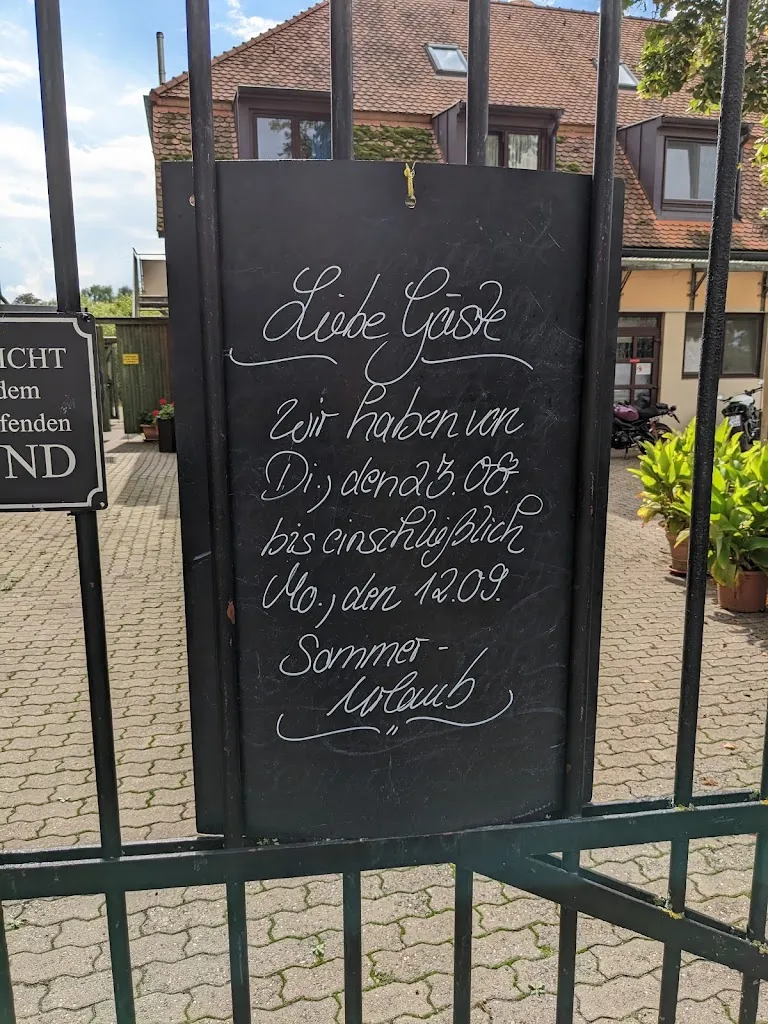 ICHT
dem
fenden
ND
Liebe Gäste
Wir haben von
Di., den 23.08.
bis einschließlich
Mo., den 12.09.
Sommer-
Urlaub